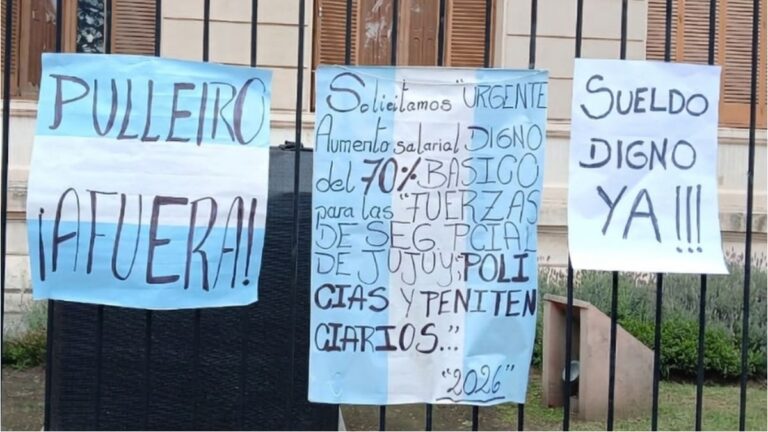 PULLEIRO
¡AFUERA!
Solicitamos "URGENTE
Aumento salarial DIGNO
del 70% BASICO
para las "FUERZAS
DE SEG PCIAL
DE JUJUY; POLI
CIAS Y PENITEN
CIARIOS..."
"2026"
SUELDO
DIGNO
YA!!!